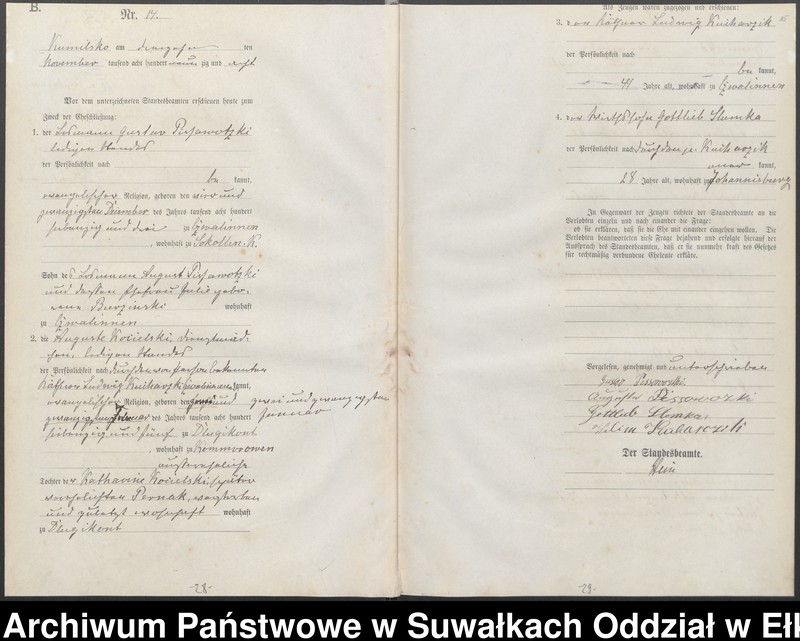 B.
Nr. 14.
Kumilsko am dreizehn ten
November tausend acht hundert neun zig und acht
Vor dem unterzeichneten Standesbeamten erschienen heute zum
Zweck der Eheschließung:
1. der Losmann Gustav Pissowotzki
ledigen Standes
der Persönlichkeit nach
be kannt,
evangelischer Religion, geboren den vier und
zwanzigsten Dezember des Jahres tausend acht hundert
siebenzig und drei zu Gwalinnen
, wohnhaft zu Sokollen. K.
Sohn des Losmann August Pissowotzki
und dessen Ehefrau Julie gebo-
rene wohnhaft
zu Gwalinnen
2. die Auguste Koziolski, Dienstmäd-
chen, ledigen Standes
der Persönlichkeit nach durch den von Person bekannten
Käthner Ludwig Kucharzik kannt,
evangelischer Religion, geboren den zwei und zwanzigsten
Januar des Jahres tausend acht hundert
siebenzig und fünf zu Dlugikont
, wohnhaft zu Kommorowen
außereheliche
Tochter der Katharine Koziolski, später
verehelichten Pernak, verstorben
und zuletzt wohnhaft wohnhaft
zu Dlugikont
-28-
Als Zeugen waren zugezogen und erschienen:
3. der Käthner Ludwig Kucharzik
der Persönlichkeit nach
be kannt,
41 Jahre alt, wohnhaft zu Gwalinnen
4. der Wirthssohn Gottlieb Slomka
der Persönlichkeit nach durch den p. Kucharzik
aner kannt,
28 Jahre alt, wohnhaft zu Johannisburg
In Gegenwart der Zeugen richtete der Standesbeamte an die
Verlobten einzeln und nach einander die Frage:
ob sie erklären, daß sie die Ehe mit einander eingehen wollen. Die
Verlobten beantworteten diese Frage bejahend und erfolgte hierauf der
Ausspruch des Standesbeamten, daß er sie nunmehr kraft des Gesetzes
für rechtmäßig verbundene Eheleute erkläre.
Vorgelesen, genehmigt und unterschrieben
Gustav Pissowotzki
Auguste Pissowozki
Gottlieb Slomka
Der Standesbeamte.
Hein
-29-
Archiwum Państwowe w Suwałkach Oddział w Eł